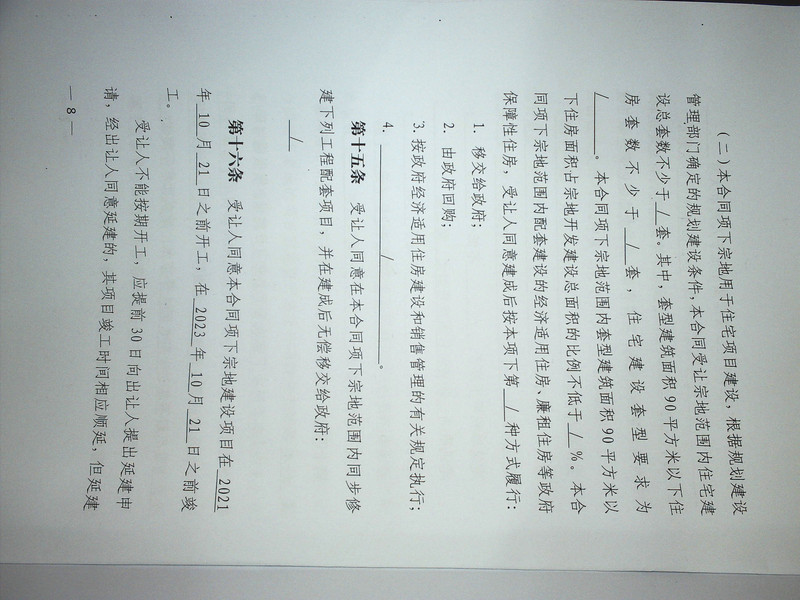 （二）本合同项下宗地用于住宅项目建设，根据规划建设
管理部门确定的规划建设条件，本合同受让宗地范围内住宅建
设总套数不少于 / 套。其中，套型建筑面积 90 平方米以下住
房套数不少于 / 套，住宅建设套型要求为
/ 。本合同项下宗地范围内套型建筑面积 90 平方米以
下住房面积占宗地开发建设总面积的比例不低于 / %。本合
同项下宗地范围内配套建设的经济适用住房、廉租住房等政府
保障性住房，受让人同意建成后按本项下第 / 种方式履行：
1. 移交给政府；
2. 由政府回购；
3. 按政府经济适用住房建设和销售管理的有关规定执行；
4. / 。
第十五条 受让人同意在本合同项下宗地范围内同步修
建下列工程配套项目，并在建成后无偿移交给政府：
/
第十六条 受让人同意本合同项下宗地建设项目在 2021
年 10 月 21 日之前开工，在 2023 年 10 月 21 日之前竣
工。
受让人不能按期开工，应提前 30 日向出让人提出延建申
请，经出让人同意延建的，其项目竣工时间相应顺延，但延建
— 8 —